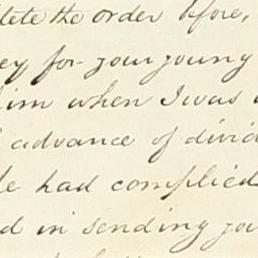 plete the order before,
ey for your young
him when I was
advance of divid
he had complied
d in sending you